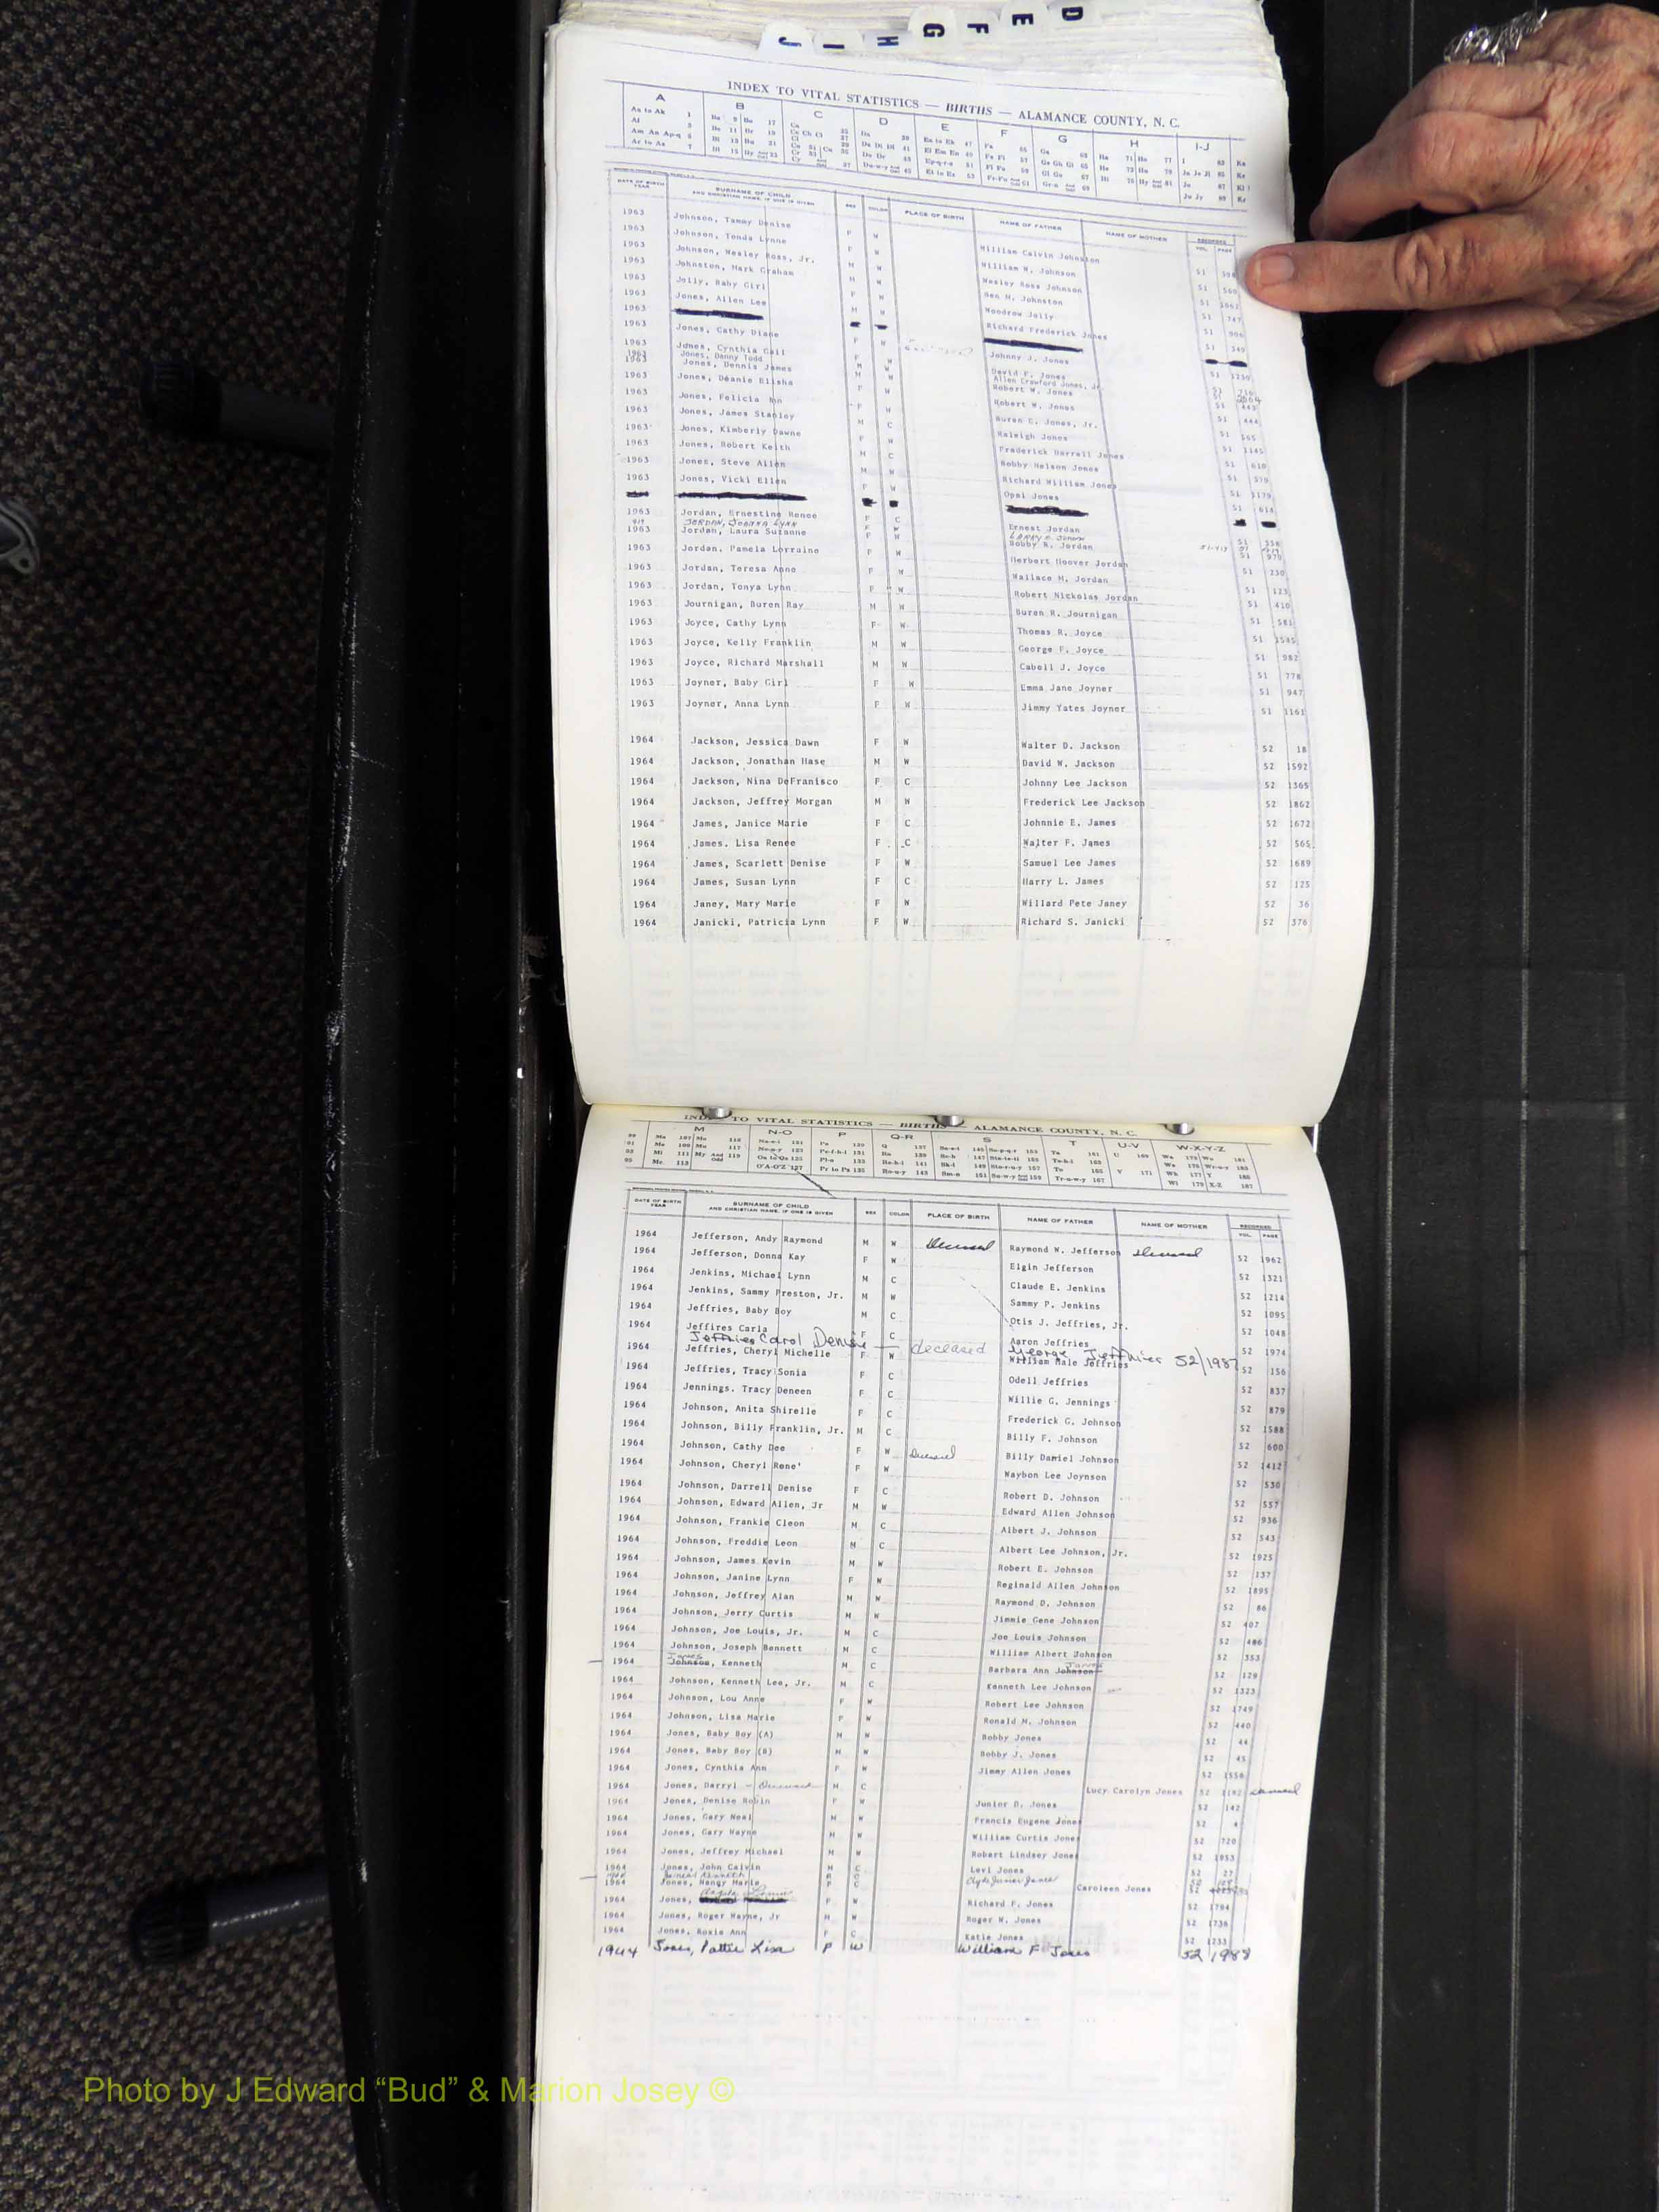 D
E
F
G
H
I
J
INDEX TO VITAL STATISTICS — BIRTHS — ALAMANCE COUNTY, N. C.
A B C D E F G H I-J
DATE OF BIRTH YEAR SURNAME OF CHILD AND CHRISTIAN NAME, IF ONE IS GIVEN SEX COLOR PLACE OF BIRTH NAME OF FATHER NAME OF MOTHER RECORDED VOL. PAGE
1963 Johnson, Tammy Denise F W William Calvin Johnston 51
1963 Johnson, Tonda Lynne F W William W. Johnson 51 560
1963 Johnson, Wesley Ross, Jr. M W Wesley Ross Johnson 51
1963 Johnston, Mark Graham M W Ben H. Johnston 51 747
1963 Jolly, Baby Girl F Woodrow Jolly 51 906
1963 Jones, Allen Lee M W Richard Frederick Jones 51 349
1963
1963 Jones, Cathy Diane F W Johnny J. Jones 51 1230
1963 Jones, Cynthia Gail F W David F. Jones 51
1963 Jones, Danny Todd M W Allen Crawford Jones, Jr. 51
1963 Jones, Dennis James M W Robert W. Jones 51 448
1963 Jones, Deanie Elisha F W Robert W. Jones 51 444
1963 Jones, Felicia Ann F W Buren E. Jones, Jr. 51 565
1963 Jones, James Stanley M C Raleigh Jones 51 1145
1963 Jones, Kimberly Dawne F W Frederick Darrell Jones 51 610
1963 Jones, Robert Keith M C Bobby Nelson Jones 51 579
1963 Jones, Steve Allen M W Richard William Jones 51 1179
1963 Jones, Vicki Ellen F W Opal Jones 51 614
1963 Jordan, Ernestine Renee F C Ernest Jordan 51 358
JORDAN, JOANNA LYNN F W LARRY
1963 Jordan, Laura Suzanne F W Bobby R. Jordan 51 979
1963 Jordan. Pamela Lorraine F W Herbert Hoover Jordan 51 230
1963 Jordan, Teresa Anne F W Wallace H. Jordan 51 123
1963 Jordan, Tonya Lynn F W Robert Nickolas Jordan 51 410
1963 Journigan, Buren Ray M W Buren R. Journigan 51 581
1963 Joyce, Cathy Lynn F W Thomas R. Joyce 51 1545
1963 Joyce, Kelly Franklin M W George F. Joyce 51 982
1963 Joyce, Richard Marshall M W Cabell J. Joyce 51 778
1963 Joyner, Baby Girl F W Emma Jane Joyner 51 947
1963 Joyner, Anna Lynn F W Jimmy Yates Joyner 51 1161
1964 Jackson, Jessica Dawn F W Walter D. Jackson 52 18
1964 Jackson, Jonathan Hase M W David W. Jackson 52 1592
1964 Jackson, Nina DeFranisco F C Johnny Lee Jackson 52 1365
1964 Jackson, Jeffrey Morgan M W Frederick Lee Jackson 52 1862
1964 James, Janice Marie F C Johnnie E. James 52 1672
1964 James. Lisa Renee F C Walter F. James 52 565
1964 James, Scarlett Denise F W Samuel Lee James 52 1689
1964 James, Susan Lynn F C Harry L. James 52 125
1964 Janey, Mary Marie F W Willard Pete Janey 52 36
1964 Janicki, Patricia Lynn F W Richard S. Janicki 52 376
INDEX TO VITAL STATISTICS — BIRTHS — ALAMANCE COUNTY, N. C.
M N-O P Q-R S T U-V W-X-Y-Z
DATE OF BIRTH YEAR SURNAME OF CHILD AND CHRISTIAN NAME, IF ONE IS GIVEN SEX COLOR PLACE OF BIRTH NAME OF FATHER NAME OF MOTHER RECORDED VOL. PAGE
1964 Jefferson, Andy Raymond M W Deceased Raymond W. Jefferson Deceased 52 1962
1964 Jefferson, Donna Kay F W Elgin Jefferson 52 1321
1964 Jenkins, Michael Lynn M C Claude E. Jenkins 52 1214
1964 Jenkins, Sammy Preston, Jr. M W Sammy P. Jenkins 52 1095
1964 Jeffries, Baby Boy M C Otis J. Jeffries, Jr. 52 1048
1964 Jeffires Carla F C Aaron Jeffries 52 1974
Jeffries Carol Denise — deceased George Jeffries 52/1987
1964 Jeffries, Cheryl Michelle F W William Hale Jeffries 52 156
1964 Jeffries, Tracy Sonia F C Odell Jeffries 52 837
1964 Jennings. Tracy Deneen F C Willie G. Jennings 52 879
1964 Johnson, Anita Shirelle F C Frederick G. Johnson 52 1588
1964 Johnson, Billy Franklin, Jr. M C Billy F. Johnson 52 600
1964 Johnson, Cathy Dee F W Deceased Billy Daniel Johnson 52 1412
1964 Johnson, Cheryl Rene' F W Waybon Lee Joynson 52 530
1964 Johnson, Darrell Denise F C Robert D. Johnson 52 557
1964 Johnson, Edward Allen, Jr M W Edward Allen Johnson 52 936
1964 Johnson, Frankie Cleon M C Albert J. Johnson 52 543
1964 Johnson, Freddie Leon M C Albert Lee Johnson, Jr. 52 1925
1964 Johnson, James Kevin M W Robert E. Johnson 52 137
1964 Johnson, Janine Lynn F W Reginald Allen Johnson 52 1895
1964 Johnson, Jeffrey Alan M W Raymond D. Johnson 52 86
1964 Johnson, Jerry Curtis M W Jimmie Gene Johnson 52 407
1964 Johnson, Joe Louis, Jr. M C Joe Louis Johnson 52 486
1964 Johnson, Joseph Bennett M C William Albert Johnson 52 353
Jones Jones
1964 Johnson, Kenneth M C Barbara Ann Johnson 52 129
1964 Johnson, Kenneth Lee, Jr. M C Kenneth Lee Johnson 52 1323
1964 Johnson, Lou Anne F W Robert Lee Johnson 52 1749
1964 Johnson, Lisa Marie F W Ronald M. Johnson 52 440
1964 Jones, Baby Boy (A) M W Bobby Jones 52 44
1964 Jones, Baby Boy (B) M W Bobby J. Jones 52 45
1964 Jones, Cynthia Ann F W Jimmy Allen Jones 52 1556
1964 Jones, Darryl - Deceased M C Lucy Carolyn Jones 52 1192 deceased
1964 Jones, Denise Robin F W Junior D. Jones 52 142
1964 Jones, Gary Neal M W Francis Eugene Jones 52 4
1964 Jones, Gary Wayne M W William Curtis Jones 52 720
1964 Jones, Jeffrey Michael M W Robert Lindsey Jones 52 1953
1964 Jones, John Calvin M C Levi Jones 52 27
Clyde Junior Jones
1964 Jones, Nancy Marie F C Caroleen Jones 52
1964 Jones, Angela F W Richard F. Jones 52 1794
1964 Jones, Roger Wayne, Jr M W Roger W. Jones 52 1736
1964 Jones. Roxie Ann F C Katie Jones 52 1233
1964 Jones, Pattie Lisa F W William F Jones 52 1988
Photo by J Edward “Bud” & Marion Josey ©